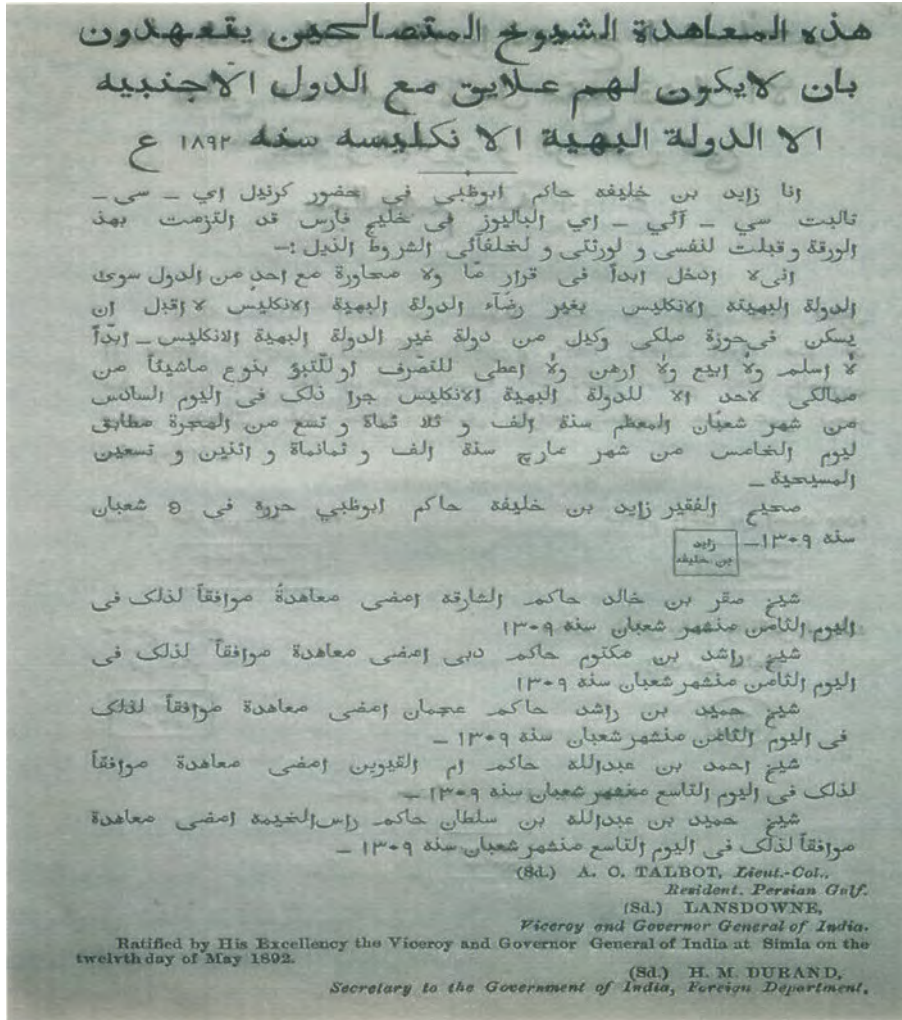 هذه المعاهدة الشيوخ المتصالحين يتعهدون
بان لايكون لهم علايق مع الدول الاجنبيه
الا الدولة البهية الا نكليسه سنه ١٨٩٢ ع
انا زايد بن خليفه حاكم ابوظبي في حضور كرنيل اي - سي -
تالبت سي - آئي - اي الباليوز في خليج فارس قد التزمت بهذ
الورقة و قبلت لنفسى و لورثتى و لخلفآئى الشروط الذيل :-
انى لا ادخل ابداً فى قرار مّا ولا محاورة مع احد من الدول سوى
الدولة البهيته الانكليس بغير رضآء الدولة البهية الانكليس لا اقبل ان
يسكن فى حوزة ملكى وكيل من دولة غير الدولة البهية الانكليس - ابداً
لا اسلم ولا ابيع ولا ارهن ولا اعطى للتصّرف او للّتبؤ بنوع ماشيئاً من
ممالكى لاحد الا للدولة البهية الانكليس جرا ذلک فى اليوم السادس
من شهر شعبان المعظم سنة الف و ثلا ثماة و تسع من الهجرة مطابق
ليوم الخامس من شهر مارچ سنة الف و ثمانماة و اثنين و تسعين
المسيحية -
صحيح الفقير زايد بن خليفة حاكم ابوظبي حرره فى ٥ شعبان
سنه ١٣٠٩-
زايد
بن خليفه
شيخ صقر بن خالد حاكم الشارقه امضى معاهدةً موافقاً لذلک فى
اليوم الثامن منشهر شعبان سنة ١٣٠٩
شيخ راشد بن مكتوم حاكم دبى امضى معاهدة موافقاً لذلک فى
اليوم الثامن منشهر شعبان سنة ١٣٠٩
شيخ حميد بن راشد حاكم عجمان امضى معاهدة موافقاً لذلک
فى اليوم الثامن منشهر شعبان سنة ١٣٠٩ -
شيخ احمد بن عبدالله حاكم ام القيوين امضى معاهدة موافقاً
لذلک فى اليوم التاسع منشهر شعبان سنة ١٣٠٩ -
شيخ حميد بن عبدالله بن سلطان حاكم راس الخيمه امضى معاهدة
موافقاً لذلک فى اليوم التاسع منشهر شعبان سنة ١٣٠٩ -
(Sd.) A. C. TALBOT, Lieut.-Col.,
Resident, Persian Gulf.
(Sd.) LANSDOWNE,
Viceroy and Governor General of India.
Ratified by His Excellency the Viceroy and Governor General of India at Simla on the
twelvth day of May 1892.
(Sd.) H. M. DURAND,
Secretary to the Government of India, Foreign Department.